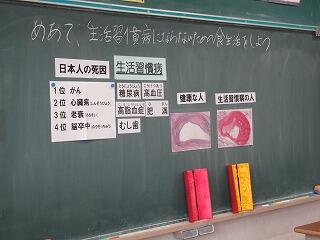 めあて、生活習慣病にならないための食生活をしよう
日本人の死因
1位 がん
2位 心臓病(しんぞうびょう)
3位 老衰(ろうすい)
4位 脳卒中(のうそっちゅう)
生活習慣病
糖尿病
高血圧
高脂血症
肥満
むし歯
健康な人
生活習慣病の人